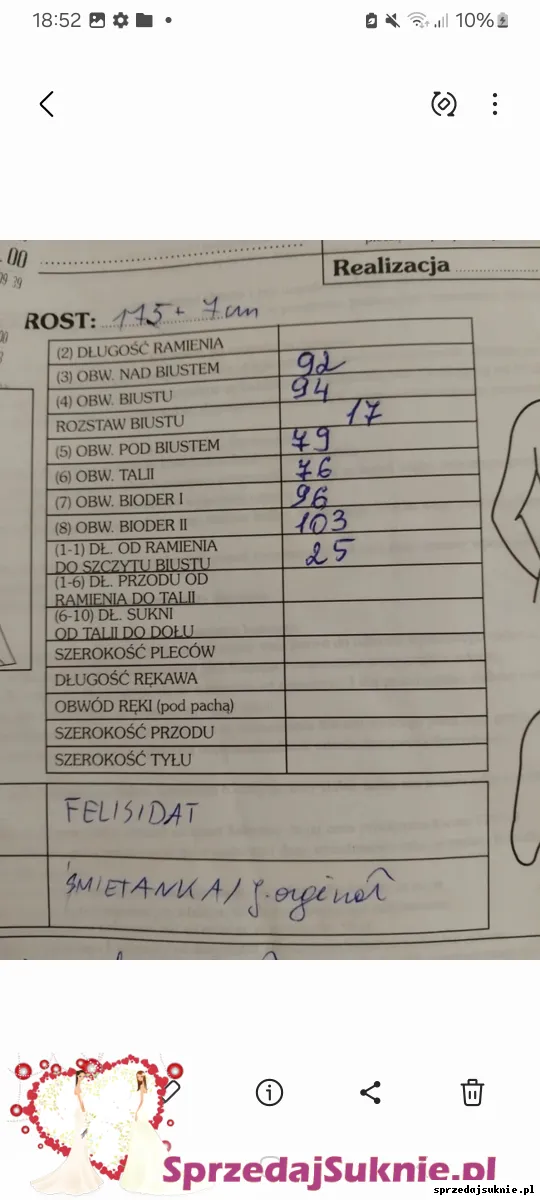 18:52
10%
.00
09 39
Realizacja
ROST: 175 + 7cm
(2) DŁUGOŚĆ RAMIENIA
(3) OBW. NAD BIUSTEM 92
(4) OBW. BIUSTU 94
ROZSTAW BIUSTU 17
(5) OBW. POD BIUSTEM 79
(6) OBW. TALII 76
(7) OBW. BIODER I 96
(8) OBW. BIODER II 103
(1-1) DŁ. OD RAMIENIA
DO SZCZYTU BIUSTU 25
(1-6) DŁ. PRZODU OD
RAMIENIA DO TALII
(6-10) DŁ. SUKNI
OD TALII DO DOŁU
SZEROKOŚĆ PLECÓW
DŁUGOŚĆ RĘKAWA
OBWÓD RĘKI (pod pachą)
SZEROKOŚĆ PRZODU
SZEROKOŚĆ TYŁU
FELISIDAT
ŚMIETANKA/ j. orginał
SprzedajSuknie.pl
sprzedajsuknie.pl